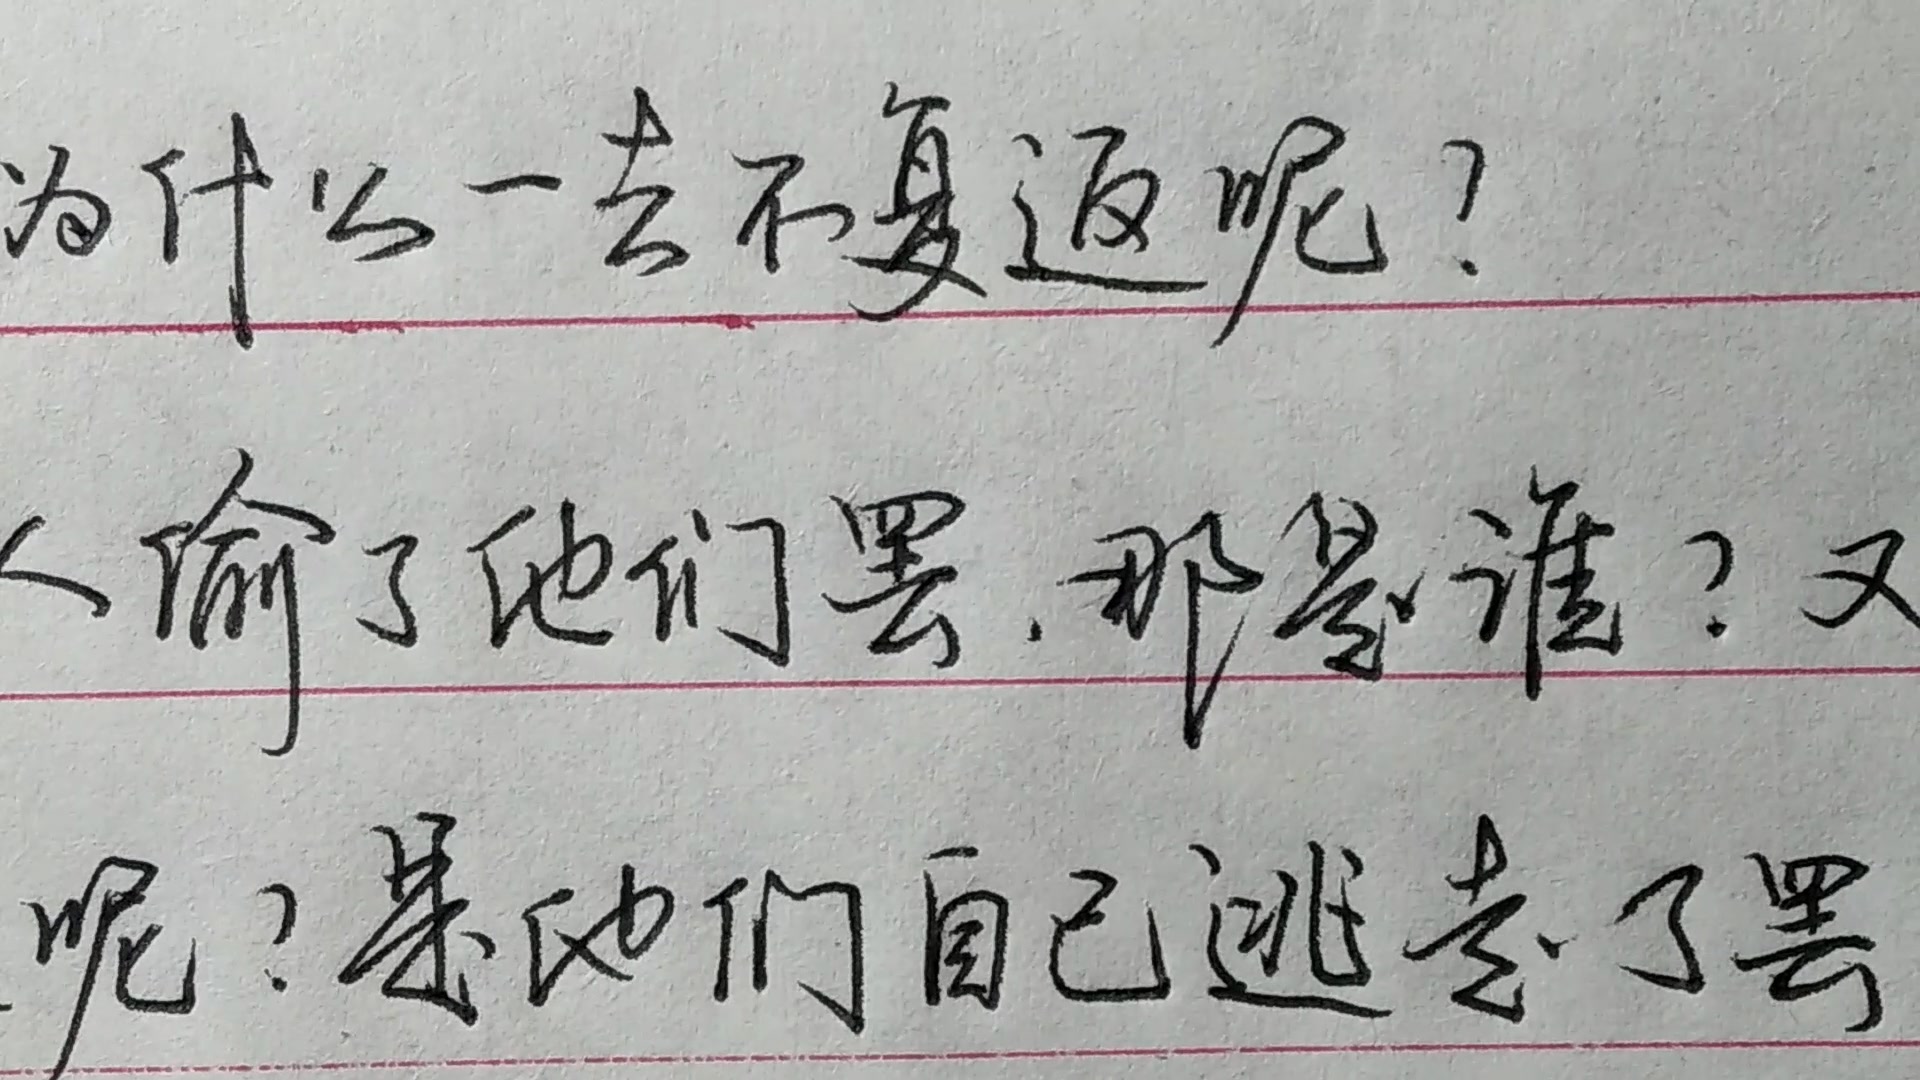 为什么一去不复返呢？
人偷了他们罢．那是谁？又
呢？是他们自己逃走了罢